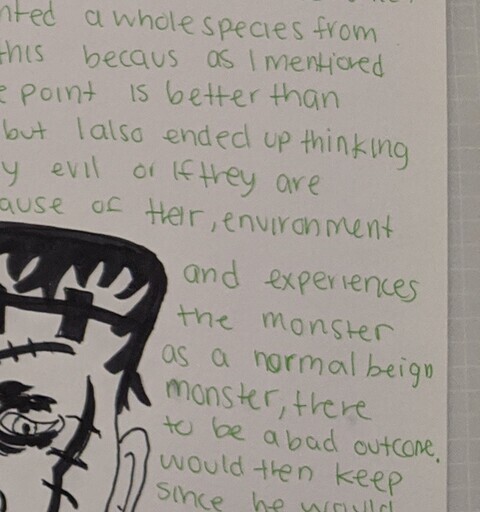 nted a whole species from
this becaus as I mentioned
e point is better than
but I also ended up thinking
y evil or if they are
ause of their, environment
and experiences
the monster
as a normal beign
monster, there
to be a bad outcome.
would then keep
since he would